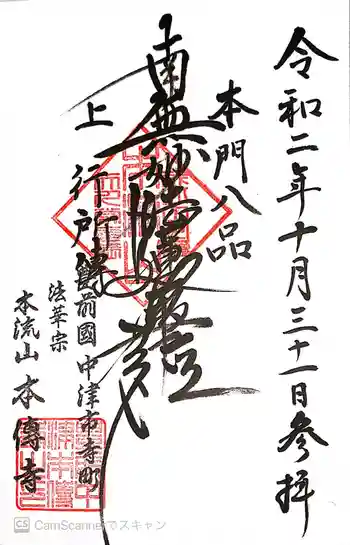 令和二年十月三十一日参拝
本門八品
南無妙法蓮華経
上行所傳
豊前國 中津市寺町
法華宗
本流山 本傳寺
CamScannerでスキャン